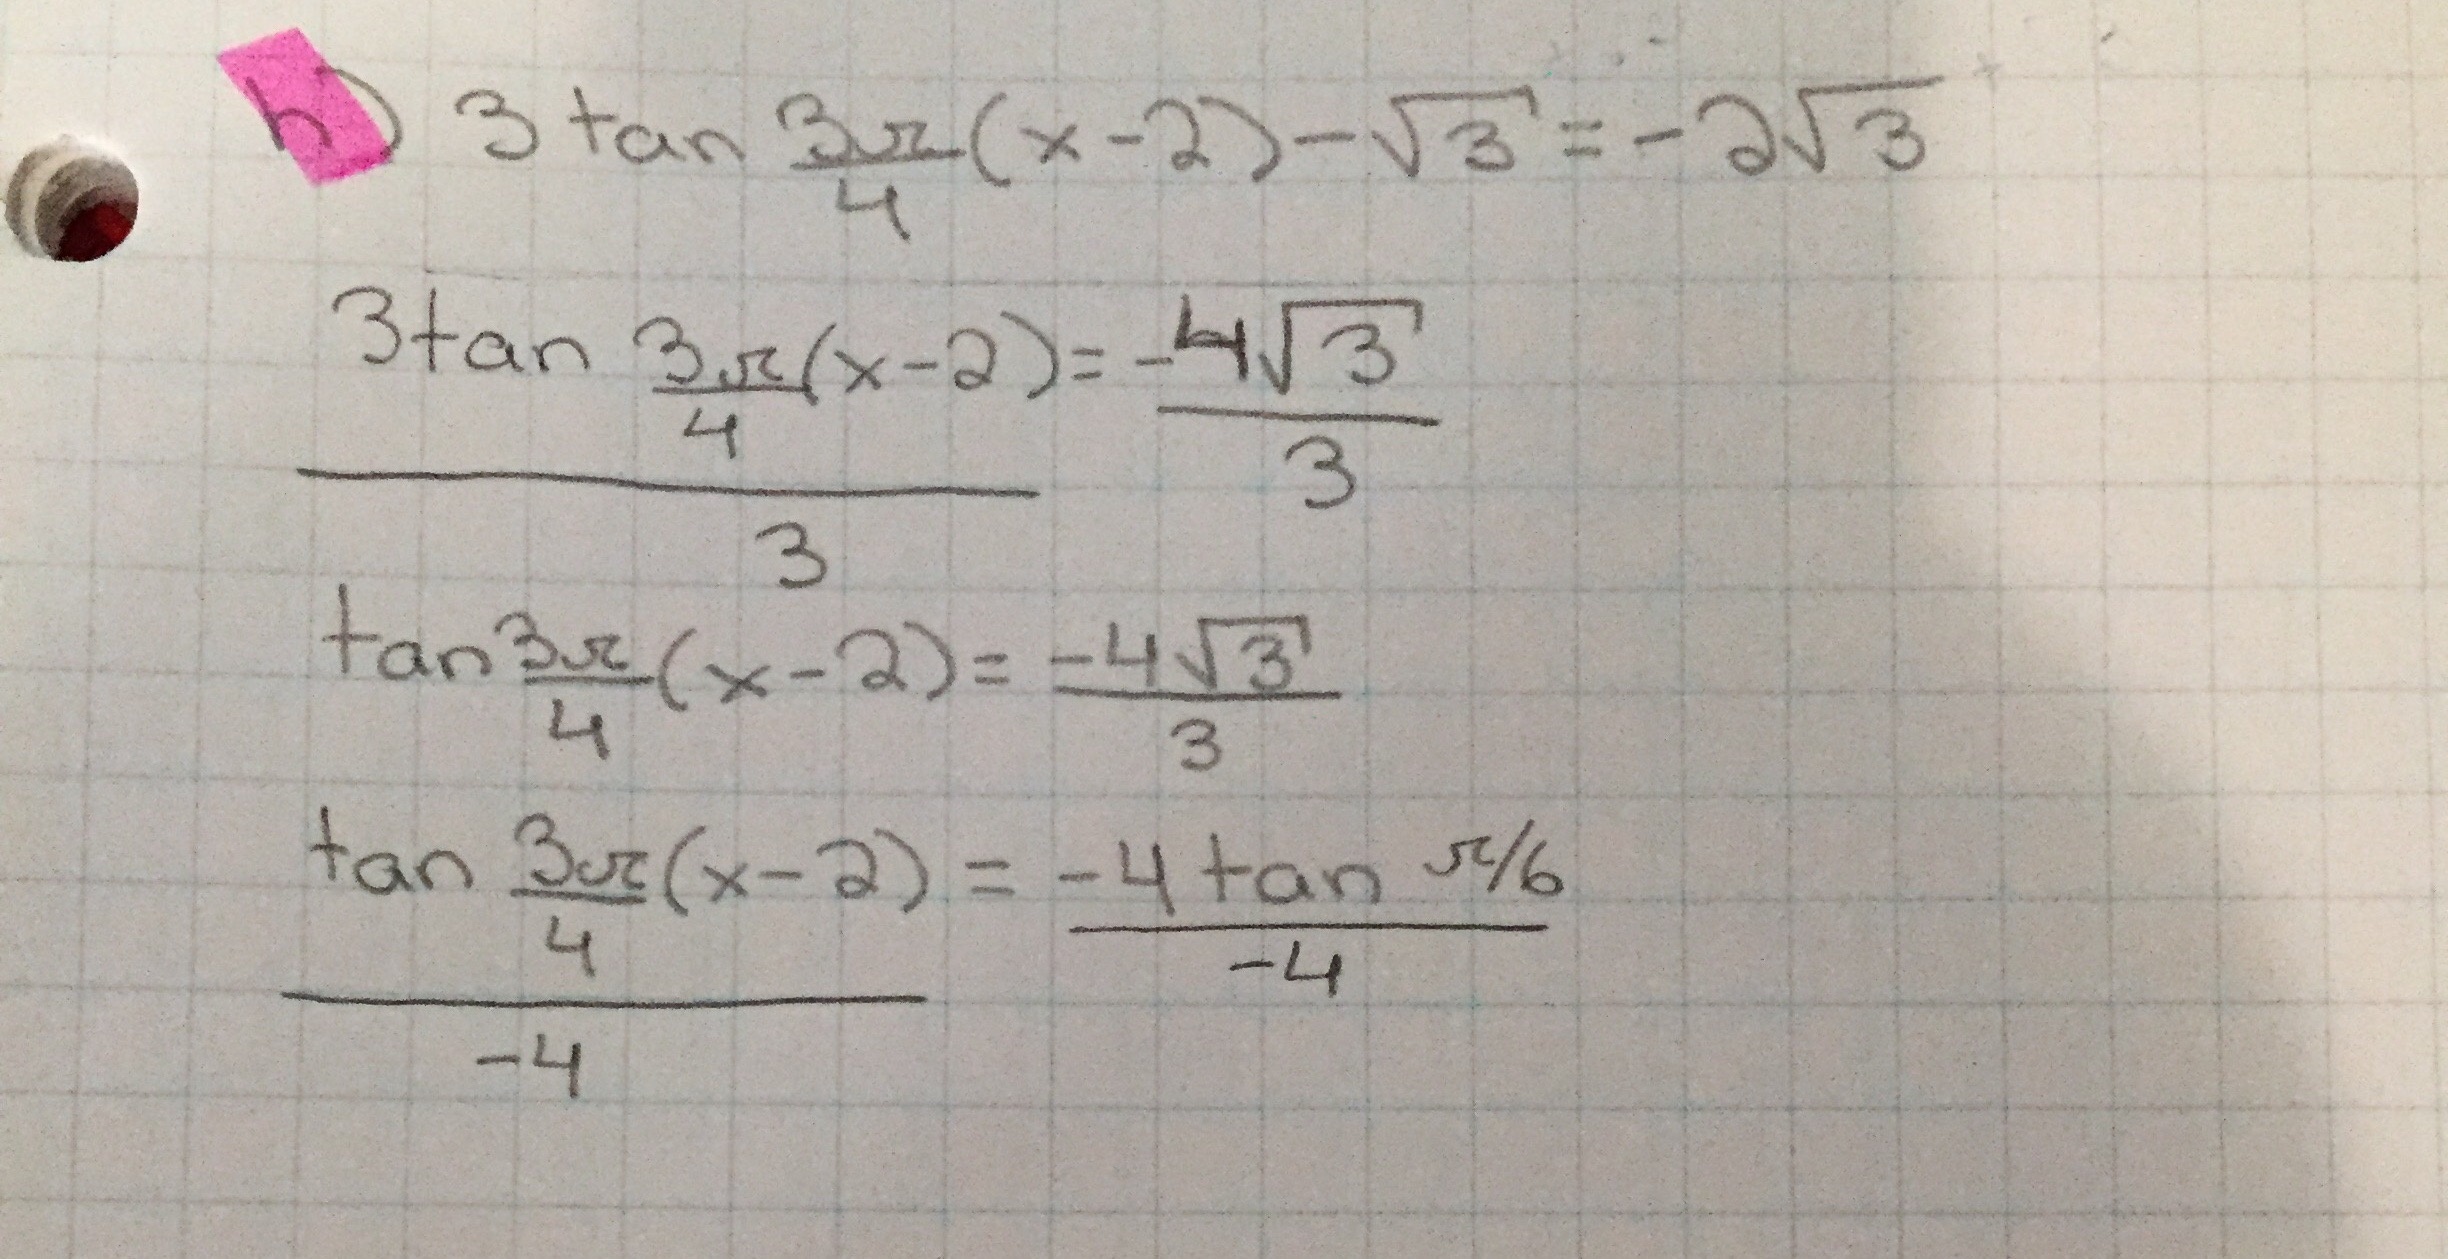 h) 3 tan 3π/4 (x-2) - √3 = -2√3
3 tan 3π/4 (x-2) / 3 = -4√3 / 3
tan 3π/4 (x-2) = -4√3 / 3
tan 3π/4 (x-2) / -4 = -4 tan π/6 / -4